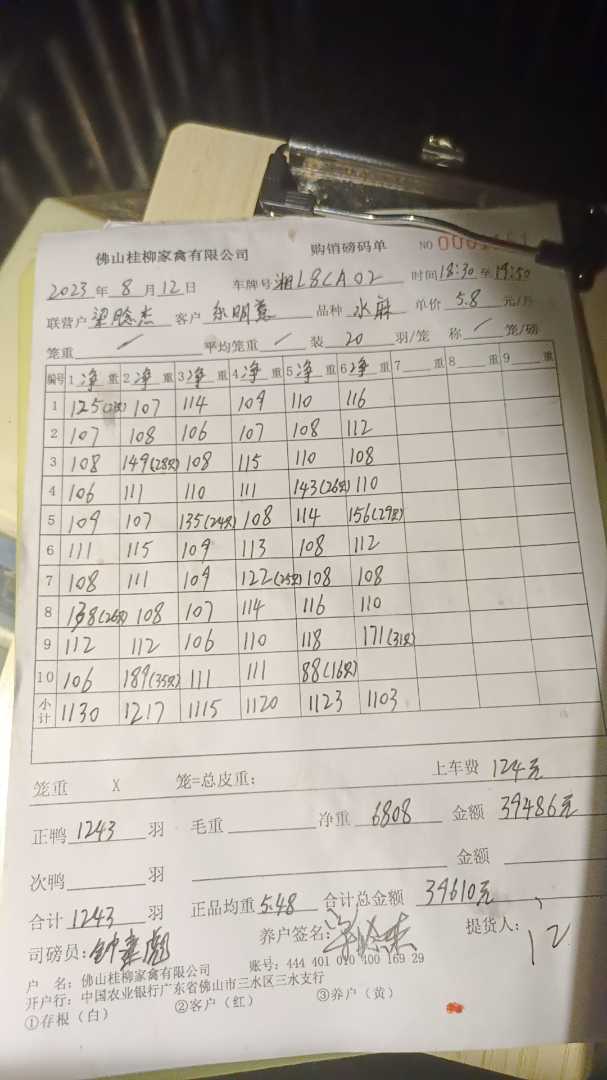 佛山桂柳家禽有限公司 购销磅码单 NO
2023年8月12日 车牌号湘L8CA02 时间18:30至19:50
联营户 客户 品种 水麻 单价 5.8 元/斤
笼重 / 平均笼重 / 装 20 羽/笼 称 / 笼/磅
编号 1净重 2净重 3净重 4净重 5净重 6净重 7重 8重 9重
1 125 107 114 109 110 116
2 107 108 106 107 108 112
3 108 149(28只) 108 115 110 108
4 106 111 110 111 143(26只) 110
5 109 107 135(24只) 108 114 156(29只)
6 111 115 109 113 108 112
7 108 111 109 122(25只) 108 108
8 138(26只) 108 107 114 116 110
9 112 112 106 110 118 171(31只)
10 106 189(35只) 111 111 88(16只)
小计 1130 1217 1115 1120 1123 1103
笼重 X 笼=总皮重: 上车费 124元
正鸭 1243 羽 毛重 净重 6808 金额 39486元
次鸭 羽 金额
合计 1243 羽 正品均重 5.48 合计总金额 39610元
司磅员: 养户签名: 提货人:
户 名:佛山桂柳家禽有限公司 账号:444 401 010 400 169 29
开户行:中国农业银行广东省佛山市三水区三水支行
①存根(白) ②客户(红) ③养户(黄)